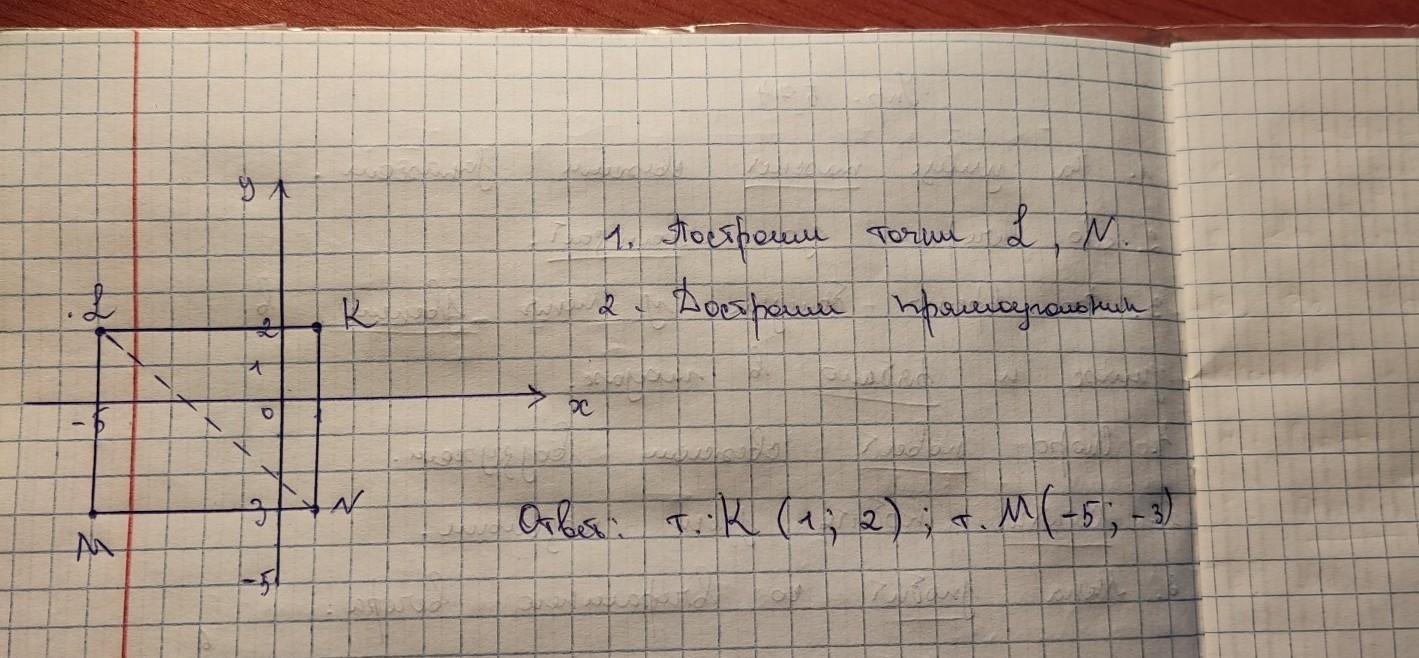 y
1. Построим точки L, N.
L
K
2. Достроим прямоугольник
2
1
-5
0
x
3
N
Ответ: т. K (1; 2); т. M(-5; -3)
M
-5